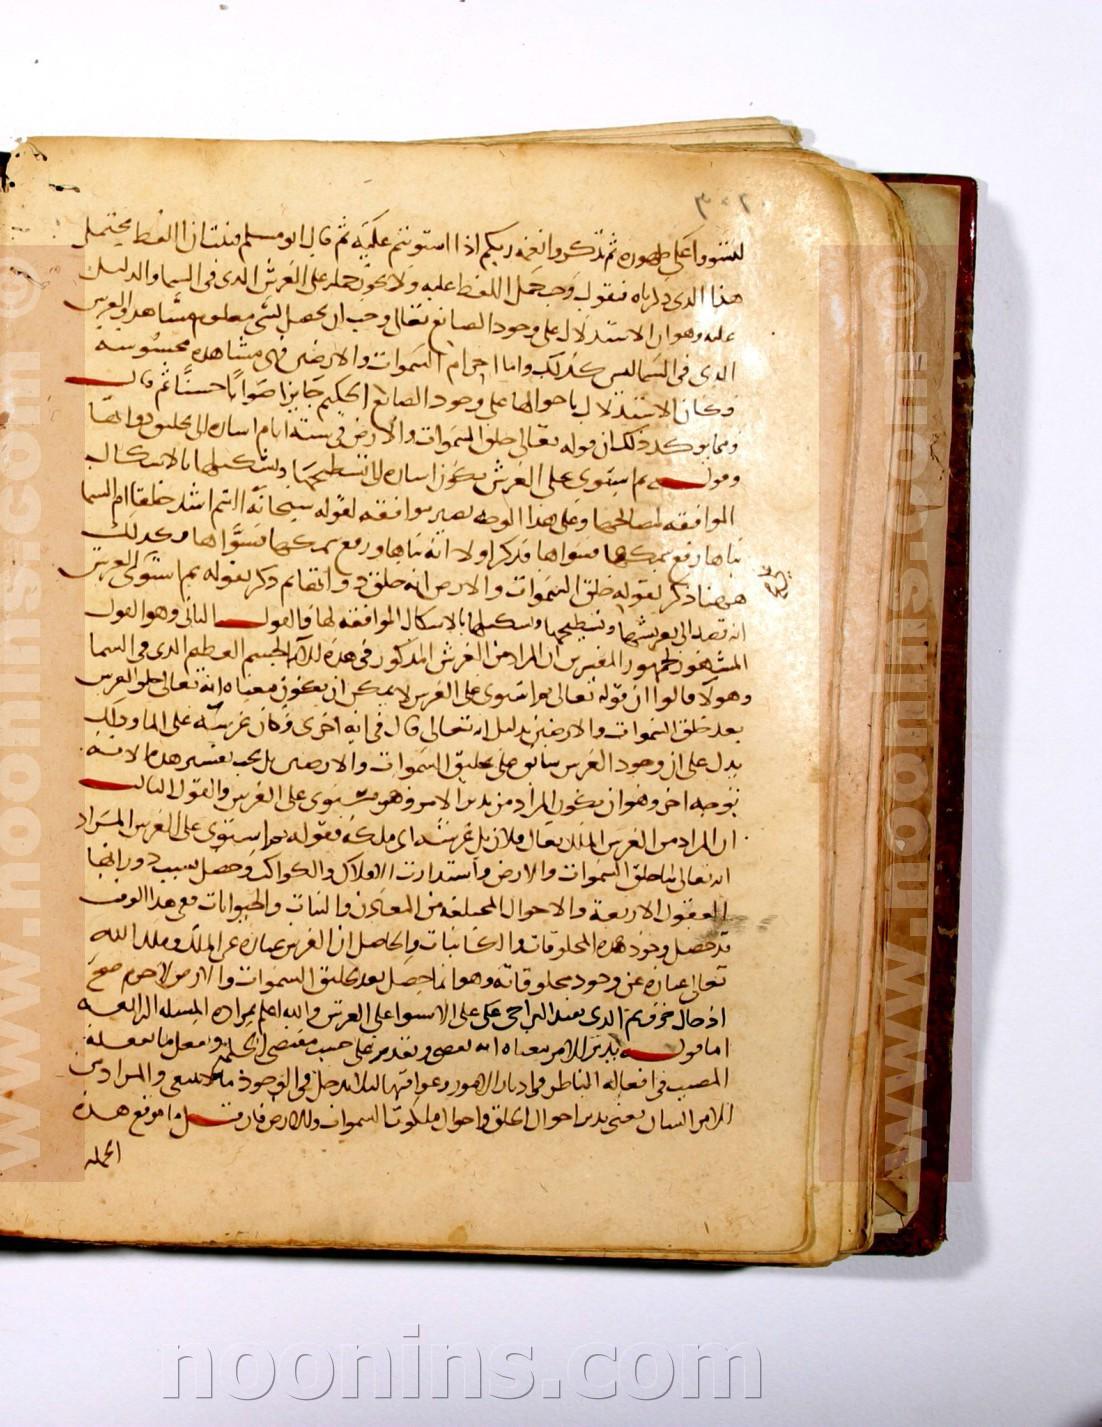 ٣٠٢
لتستووا على ظهوره ثم تذكروا نعمه ربكم اذا استويتم عليه ثم قال ابو مسلم فثبت ان اللفظ يحتمل
هذا الذى ذكرناه فنقول وجب حمل اللفظ عليه ولا يجوز حمله على العرش الذى فى السما والدليل
عليه وهو ان الاستدلال على وجود الصانع تعالى وجب ان يحصل لشى معلوم مشاهد والعرش
الذى فى السما ليس كذلك واما اجرام السموات والارضين فهى مشاهده محسوسه
فكان الاستدلال باحوالها على وجود الصانع الحكيم جايزا صوابا حسنا ثم قال
ومما يوكد ذلك ان قوله تعالى خلق السموات والارض فى سته ايام اشاره الى تخليق ذواتها
وقوله ثم استوى على العرش يكون اشاره الى تسطيحها وتشكيلها بالاشكال
الموافقه لمصالحها وعلى هذا الوجه تصير موافقه لقوله سبحانه اانتم اشد خلقا ام السما
بناها رفع سمكها فسواها فذكر اولا انه بناها ورفع سمكها فسواها وكذلك
ههنا ذكر بقوله خلق السموات والارض انه خلق ذواتها ثم ذكر بقوله ثم استوى على العرش
انه قصد الى تعريشها وتسطيحها وتشكيلها بالاشكال الموافقه لها والقول الثانى وهو القول
المشهور لجمهور المفسرين ان المراد من العرش المذكور فى هذه الايه الجسم العظيم الذى فى السما
وهولا قالوا ان قوله تعالى ثم استوى على العرش لا يمكن ان يكون معناه انه تعالى خلق العرش
بعد خلق السموات والارضين بدليل انه تعالى قال فى ايه اخرى وكان عرشه على الما وذلك
يدل على ان وجود العرش سابق على تخليق السموات والارضين بل يجب تفسير هذه الايه
بوجه اخر وهو ان يكون المراد ثم يدبر الامر وهو مستوى على العرش والقول الثالث
ان المراد من العرش الملك يقال فلان ثل عرشه اى ملكه فقوله ثم استوى على العرش المراد
انه تعالى لما خلق السموات والارض واستدارت الافلاك والكواكب وحصل بسبب دورانها
الفصول الاربعة والاحوال المختلفه من المعادن والنبات والحيوانات ففى هذا الوقت
قد حصل وجود هذه المخلوقات والكائنات والحاصل ان العرش عباره عن الملك وملك الله
تعالى عباره عن وجود مخلوقاته وهو انما حصل بعد تخليق السموات والارض لا جرم صح
ادخال حرف ثم الذى يفيد التراخى على الاستوا على العرش والله اعلم بمراده المسله الرابعه
اما قوله يدبر الامر معناه انه يقضى ويقدر على حسب مقتضى الحكمة ويفعل ما يفعله
المصيب فى افعاله الناظر فى ادبار الامور وعواقبها لئلا يدخل فى الوجود ما لا ينبغى والمراد من
الامر الشان يعنى يدبر احوال الخلق واحوال ملكوت السموات والارض فان قيل ما موقع هذه
الجمله
صح
www.noonins.com ©
www.noonins.com ©
noonins.com